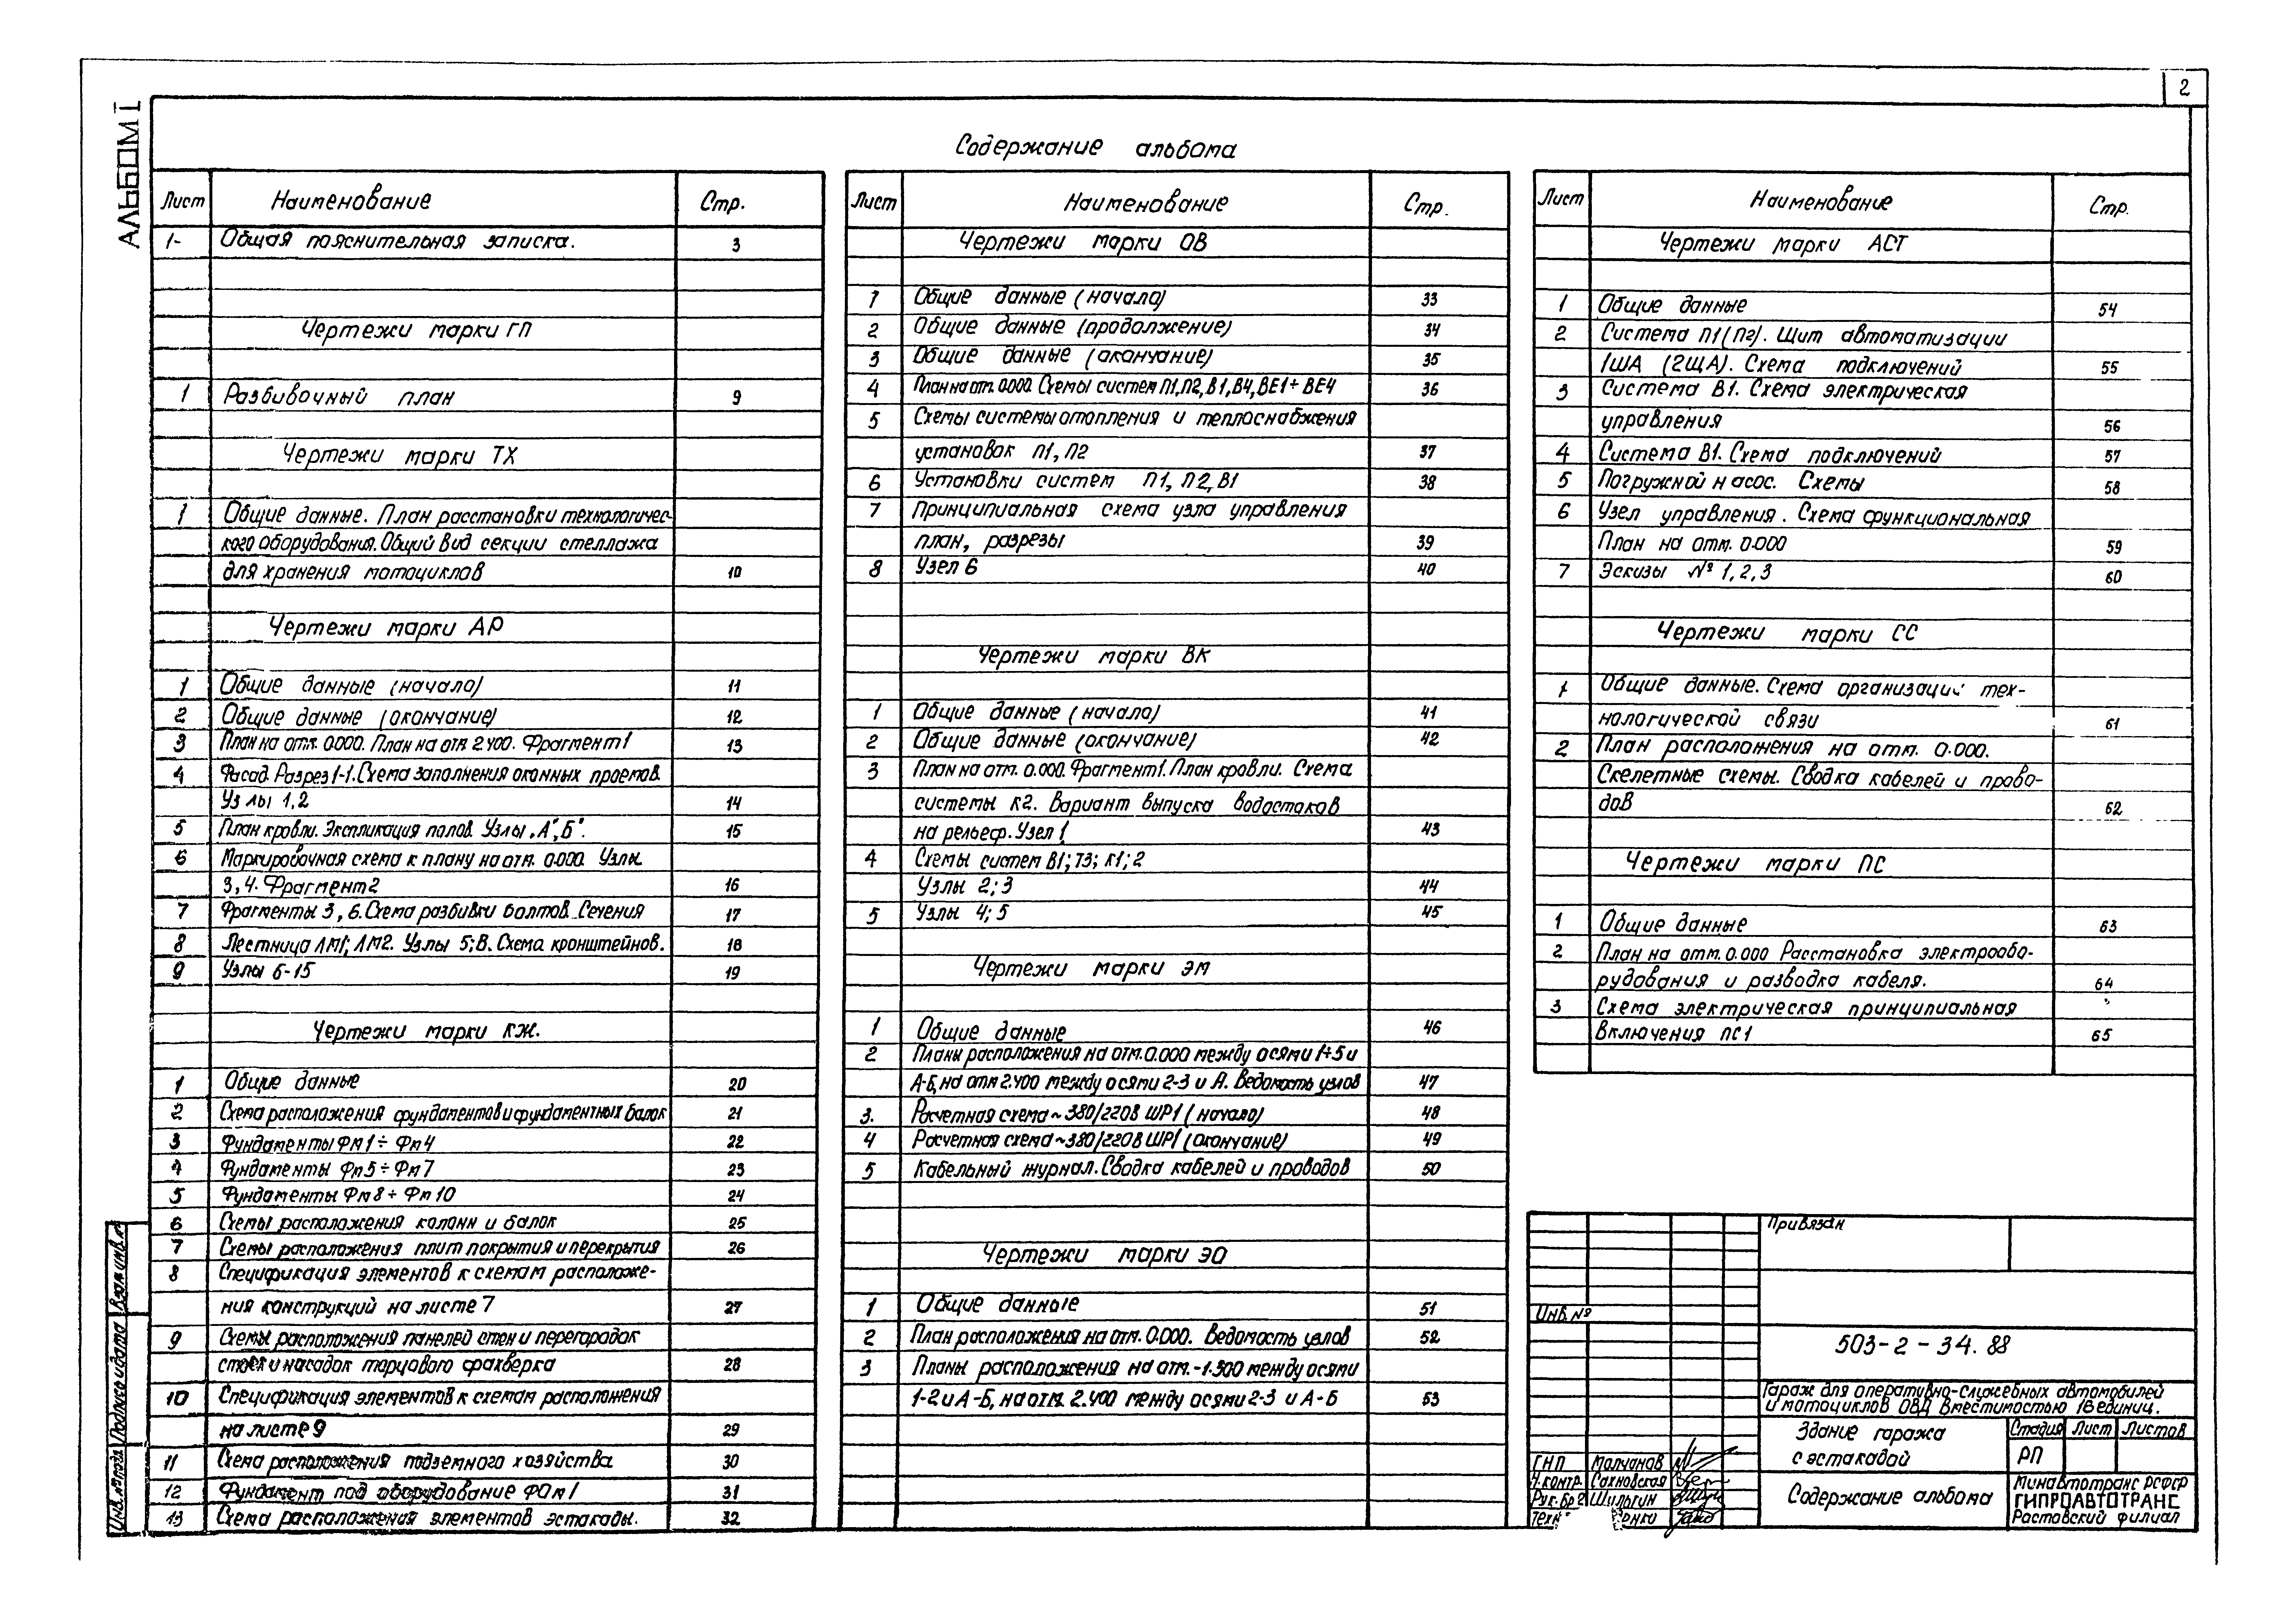 2
АЛЬБОМ I
Содержание альбома
Лист Наименование Стр.
1- Общая пояснительная записка. 3
Чертежи марки ГП
1 Разбивочный план 9
Чертежи марки ТХ
1 Общие данные. План расстановки технологичес-
кого оборудования. Общий вид секции стеллажа
для хранения мотоциклов 10
Чертежи марки АР
1 Общие данные (начало) 11
2 Общие данные (окончание) 12
3 План на отм. 0.000. План на отм 2.400. Фрагмент 1 13
4 Фасад. Разрез 1-1. Схема заполнения оконных проемов.
Узлы 1,2 14
5 План кровли. Экспликация полов. Узлы „А", Б". 15
6 Маркировочная схема к плану на отм. 0.000. Узлы
3, 4. Фрагмент 2 16
7 Фрагменты 3, 6. Схема разбивки болтов. Сечения 17
8 Лестница ЛМ1; ЛМ2. Узлы 5; В. Схема кронштейнов. 18
9 Узлы 6-15 19
Чертежи марки КЖ.
1 Общие данные 20
2 Схема расположения фундаментов и фундаментных балок 21
3 Фундаменты Фм1 ÷ Фм4 22
4 Фундаменты Фм5 ÷ Фм7 23
5 Фундаменты Фм8 ÷ Фм10 24
6 Схемы расположения колонн и балок 25
7 Схемы расположения плит покрытия и перекрытия 26
8 Спецификация элементов к схемам расположе-
ния конструкций на листе 7 27
9 Схемы расположения панелей стен и перегородок
стоек и насадок торцового фахверка 28
10 Спецификация элементов к схемам расположения
на листе 9 29
11 Схема расположения подземного хозяйства 30
12 Фундамент под оборудование ФОм1 31
13 Схема расположения элементов эстакады. 32
Лист Наименование Стр.
Чертежи марки ОВ
1 Общие данные (начало) 33
2 Общие данные (продолжение) 34
3 Общие данные (окончание) 35
4 План на отм. 0.000. Схемы систем П1, П2, В1, В4, ВЕ1 ÷ ВЕ4 36
5 Схемы системы отопления и теплоснабжения
установок П1, П2 37
6 Установки систем П1, П2, В1 38
7 Принципиальная схема узла управления
план, разрезы 39
8 Узел 6 40
Чертежи марки ВК
1 Общие данные (начало) 41
2 Общие данные (окончание) 42
3 План на отм. 0.000. Фрагмент 1. План кровли. Схема
системы К2. Вариант выпуска водостоков
на рельеф. Узел 1 43
4 Схемы систем В1; Т3; К1; 2
Узлы 2; 3 44
5 Узлы 4; 5 45
Чертежи марки ЭМ
1 Общие данные 46
2 Планы расположения на отм. 0.000 между осями 1÷5 и
А-Б, на отм 2.400 между осями 2-3 и А. Ведомость узлов 47
3. Расчетная схема ~ 380/220В ШР1 (начало) 48
4 Расчетная схема ~ 380/220В ШР1 (окончание) 49
5 Кабельный журнал. Сводка кабелей и проводов 50
Чертежи марки ЭО
1 Общие данные 51
2 План расположения на отм. 0.000. Ведомость узлов 52
3 Планы расположения на отм. -1.300 между осями
1-2 и А-Б, на отм. 2.400 между осями 2-3 и А-Б 53
Лист Наименование Стр.
Чертежи марки АСТ
1 Общие данные 54
2 Система П1 (П2). Щит автоматизации
1ША (2ЩА). Схема подключений 55
3 Система В1. Схема электрическая
управления 56
4 Система В1. Схема подключений 57
5 Погружной насос. Схемы 58
6 Узел управления. Схема функциональная
План на отм. 0.000 59
7 Эскизы № 1, 2, 3 60
Чертежи марки СС
1 Общие данные. Схема организации тех-
нологической связи 61
2 План расположения на отм. 0.000.
Скелетные схемы. Сводка кабелей и прово-
дов 62
Чертежи марки ПС
1 Общие данные 63
2 План на отм. 0.000 Расстановка электрообо-
рудования и разводка кабеля. 64
3 Схема электрическая принципиальная
включения ПС1 65
Привязан
Инв. №
503-2-34.88
Гараж для оперативно-служебных автомобилей
и мотоциклов ОВД вместимостью 18 единиц.
Здание гаража
с эстакадой
Стадия Лист Листов
РП
ГИП Молчанов
Н.контр. Сахновская
Рук.бр Шильгин
Техн
Содержание альбома
Минавтотранс РСФСР
ГИПРОАВТОТРАНС
Ростовский филиал
Инв. № подл. Подпись и дата Взам. инв. №